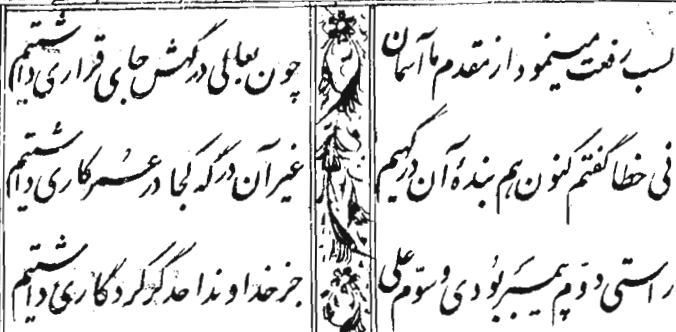 کسب رفعت مینمود از مقدم ما آسمان
چون بعالی درگهش جای قراری داشتیم
نی خطا گفتم کنون هم بندهٔ آن درگهیم
غیر آن درگه کجا در عمر کاری داشتیم
راستی دوّم پیمبر بودی و سوّم علی
جز خداوند احد گر کردگاری داشتیم